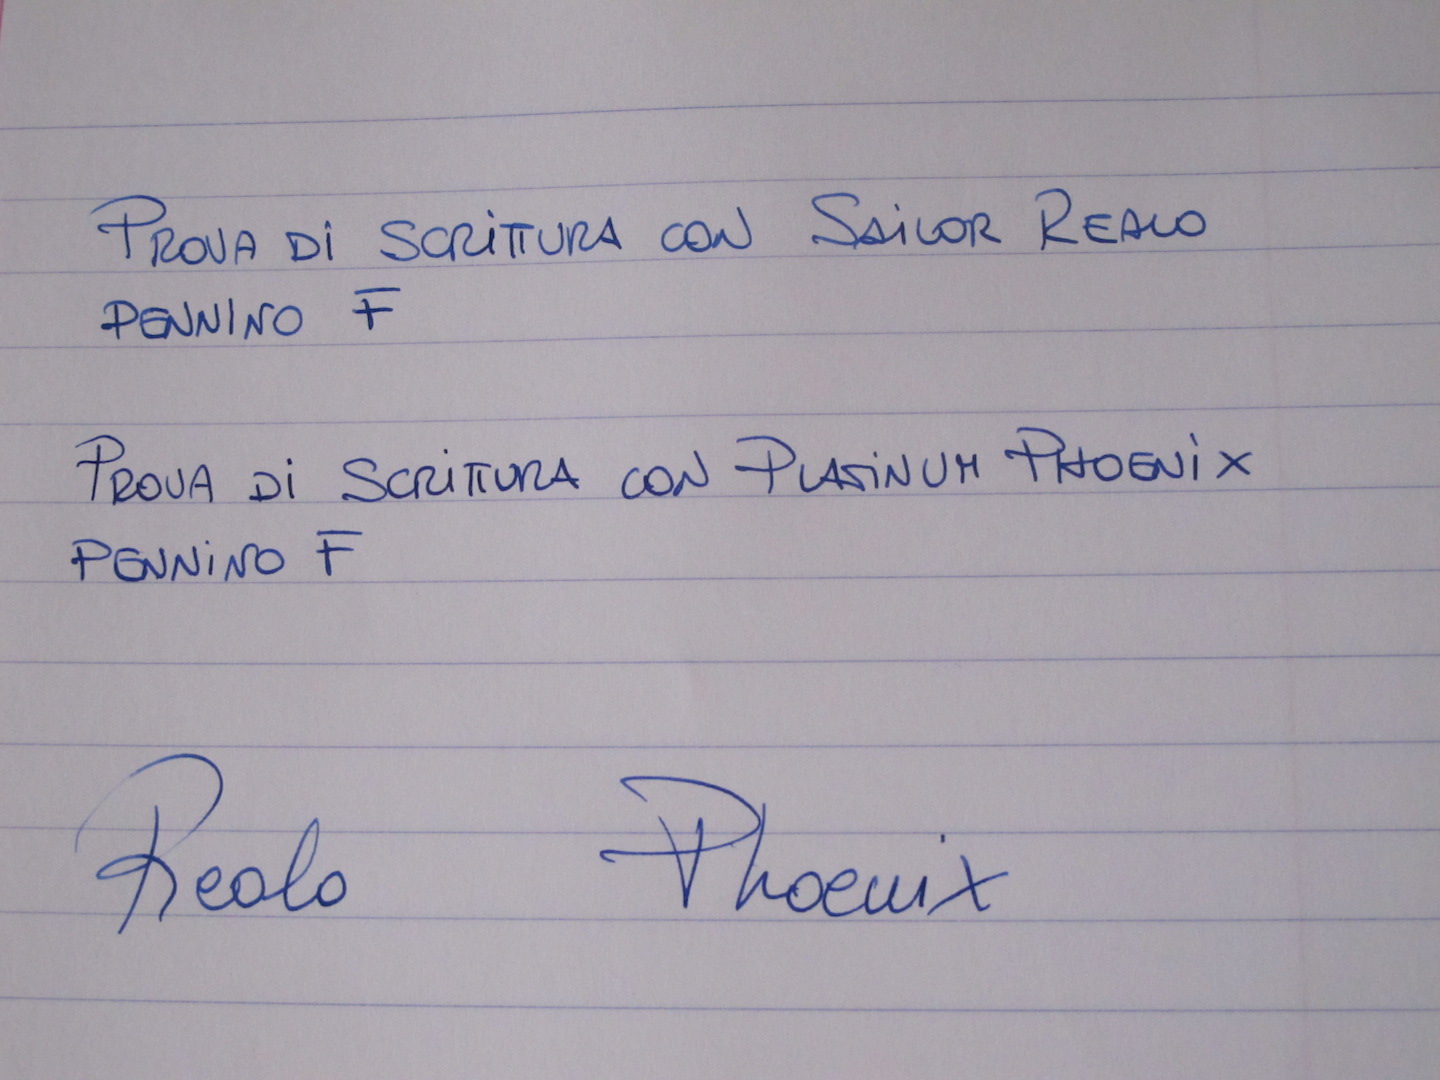 PROVA Di SCRiTTURA CON SAiLOR REALO
PENNINO F
PROVA Di SCRiTTURA CON PLATiNUM PHOENiX
PENNiNO F
Realo Phoenix